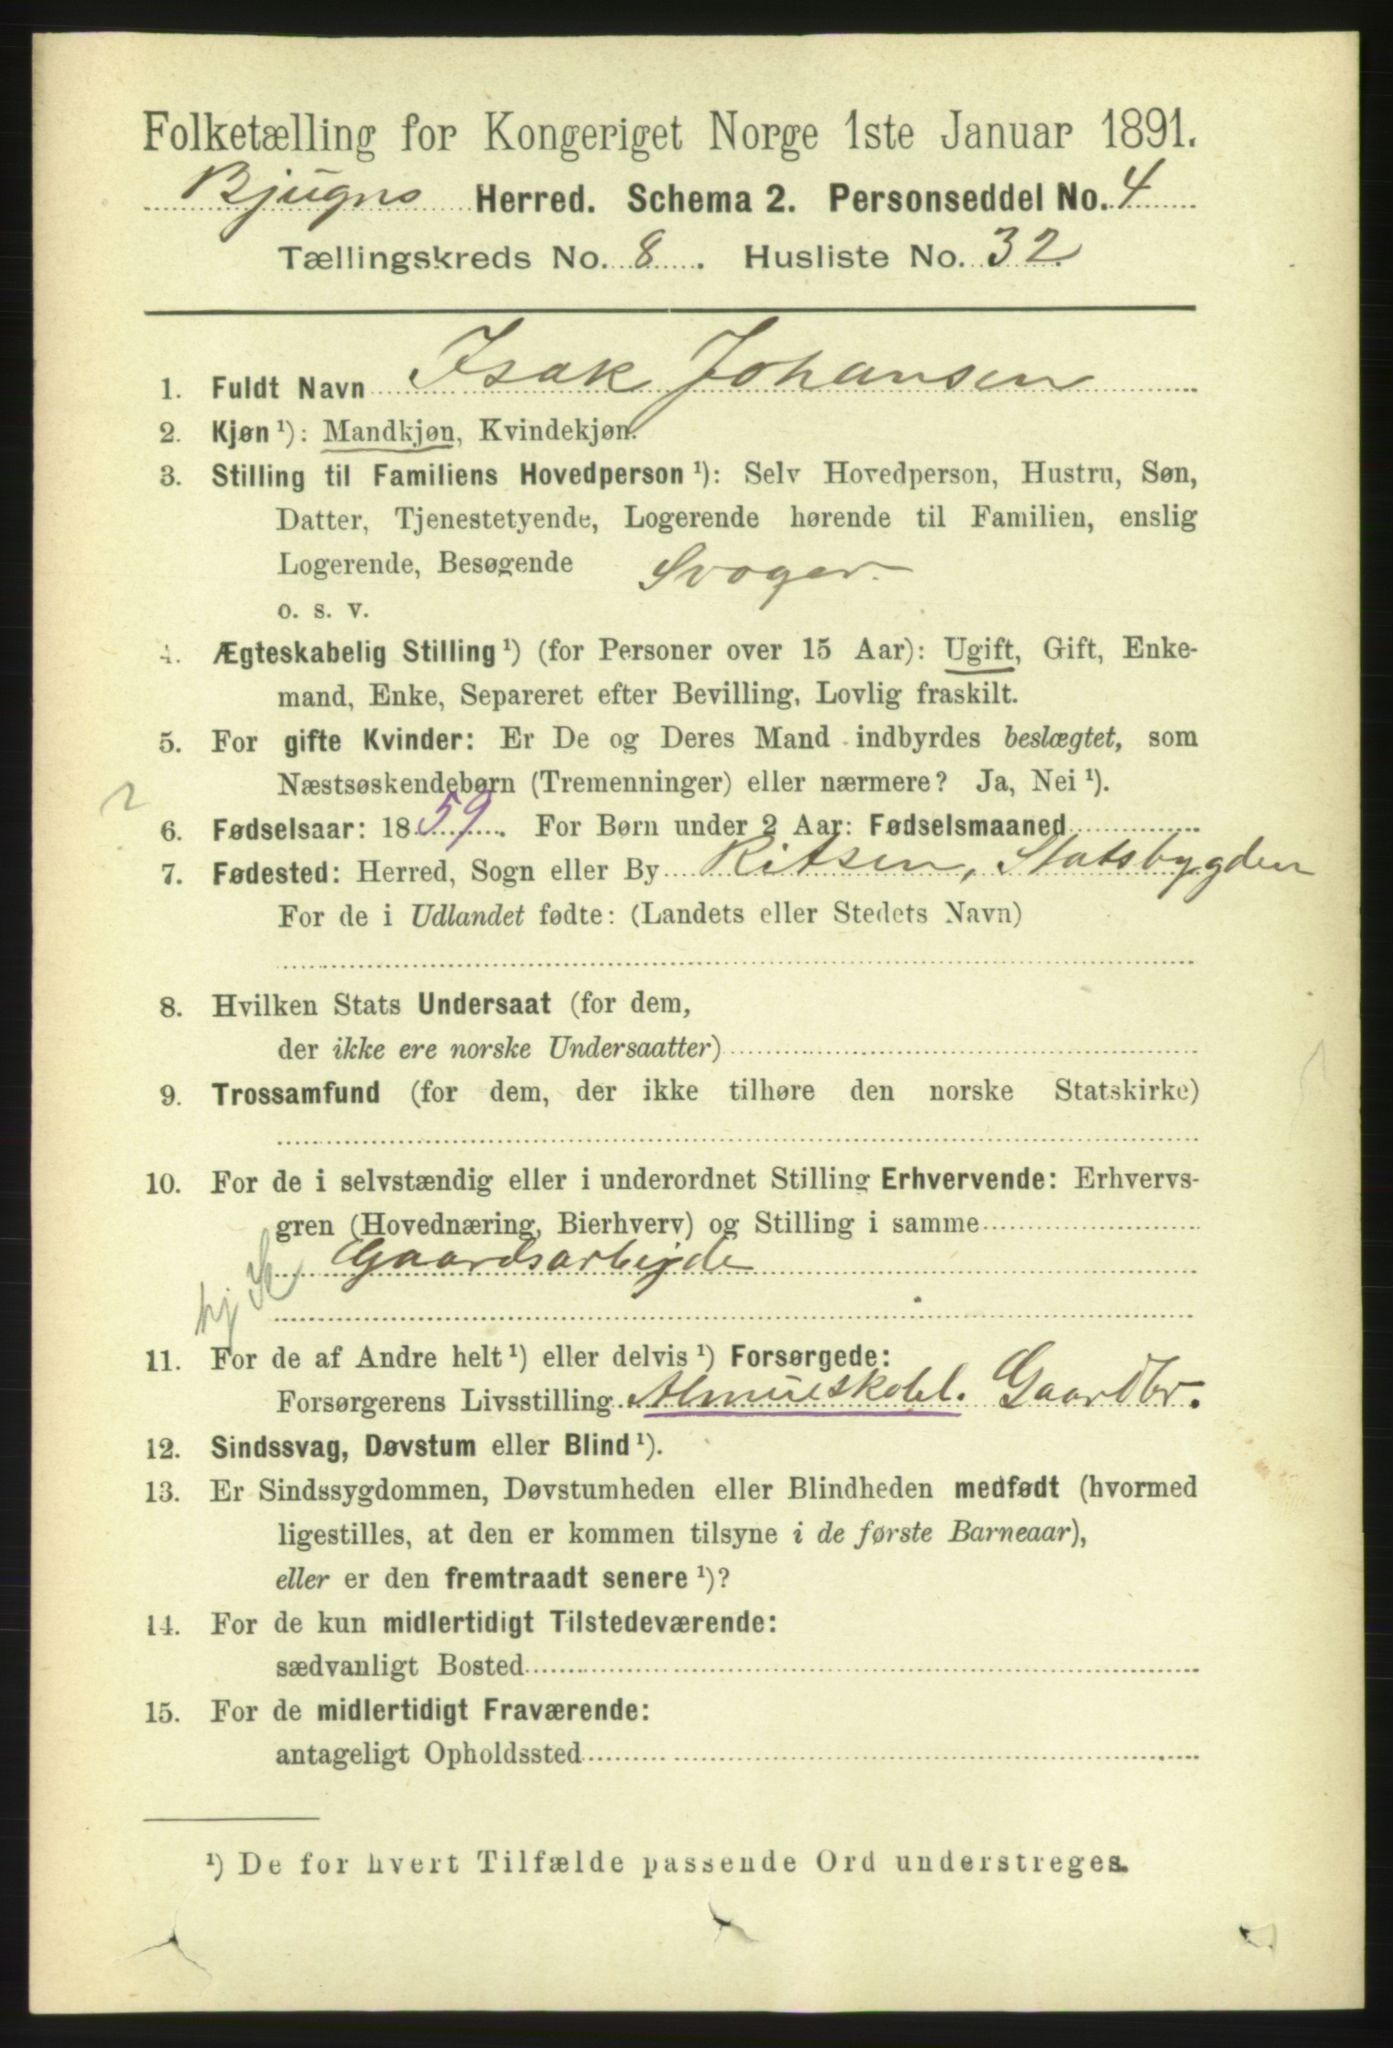 Folketælling for Kongeriget Norge 1ste Januar 1891.
Bjugns Herred. Schema 2. Personseddel No. 4
Tællingskreds No. 8. Husliste No. 32.
1. Fuldt Navn Isak Johansen
2. Kjøn ¹): Mandkjøn, Kvindekjøn.
3. Stilling til Familiens Hovedperson ¹): Selv Hovedperson, Hustru, Søn,
Datter, Tjenestetyende, Logerende hørende til Familien, enslig
Logerende, Besøgende Svoger.
o. s. v.
4. Ægteskabelig Stilling ¹) (for Personer over 15 Aar): Ugift, Gift, Enke-
mand, Enke, Separeret efter Bevilling, Lovlig fraskilt.
5. For gifte Kvinder: Er De og Deres Mand indbyrdes beslægtet, som
Næstsøskendebørn (Tremenninger) eller nærmere? Ja, Nei ¹).
6. Fødselsaar: 1859. For Børn under 2 Aar: Fødselsmaaned
7. Fødested: Herred, Sogn eller By Ritsen, Statsbygden
For de i Udlandet fødte: (Landets eller Stedets Navn)
8. Hvilken Stats Undersaat (for dem,
der ikke ere norske Undersaatter)
9. Trossamfund (for dem, der ikke tilhøre den norske Statskirke)
10. For de i selvstændig eller i underordnet Stilling Erhvervende: Erhvervs-
gren (Hovednæring, Bierhverv) og Stilling i samme
Gaardsarbejde
hj
11. For de af Andre helt ¹) eller delvis ¹) Forsørgede:
Forsørgerens Livsstilling Almueskolel. Gaardbr.
12. Sindssvag, Døvstum eller Blind ¹).
13. Er Sindssygdommen, Døvstumheden eller Blindheden medfødt (hvormed
ligestilles, at den er kommen tilsyne i de første Barneaar),
eller er den fremtraadt senere ¹)?
14. For de kun midlertidigt Tilstedeværende:
sædvanligt Bosted
15. For de midlertidigt Fraværende:
antageligt Opholdssted
¹) De for hvert Tilfælde passende Ord understreges.